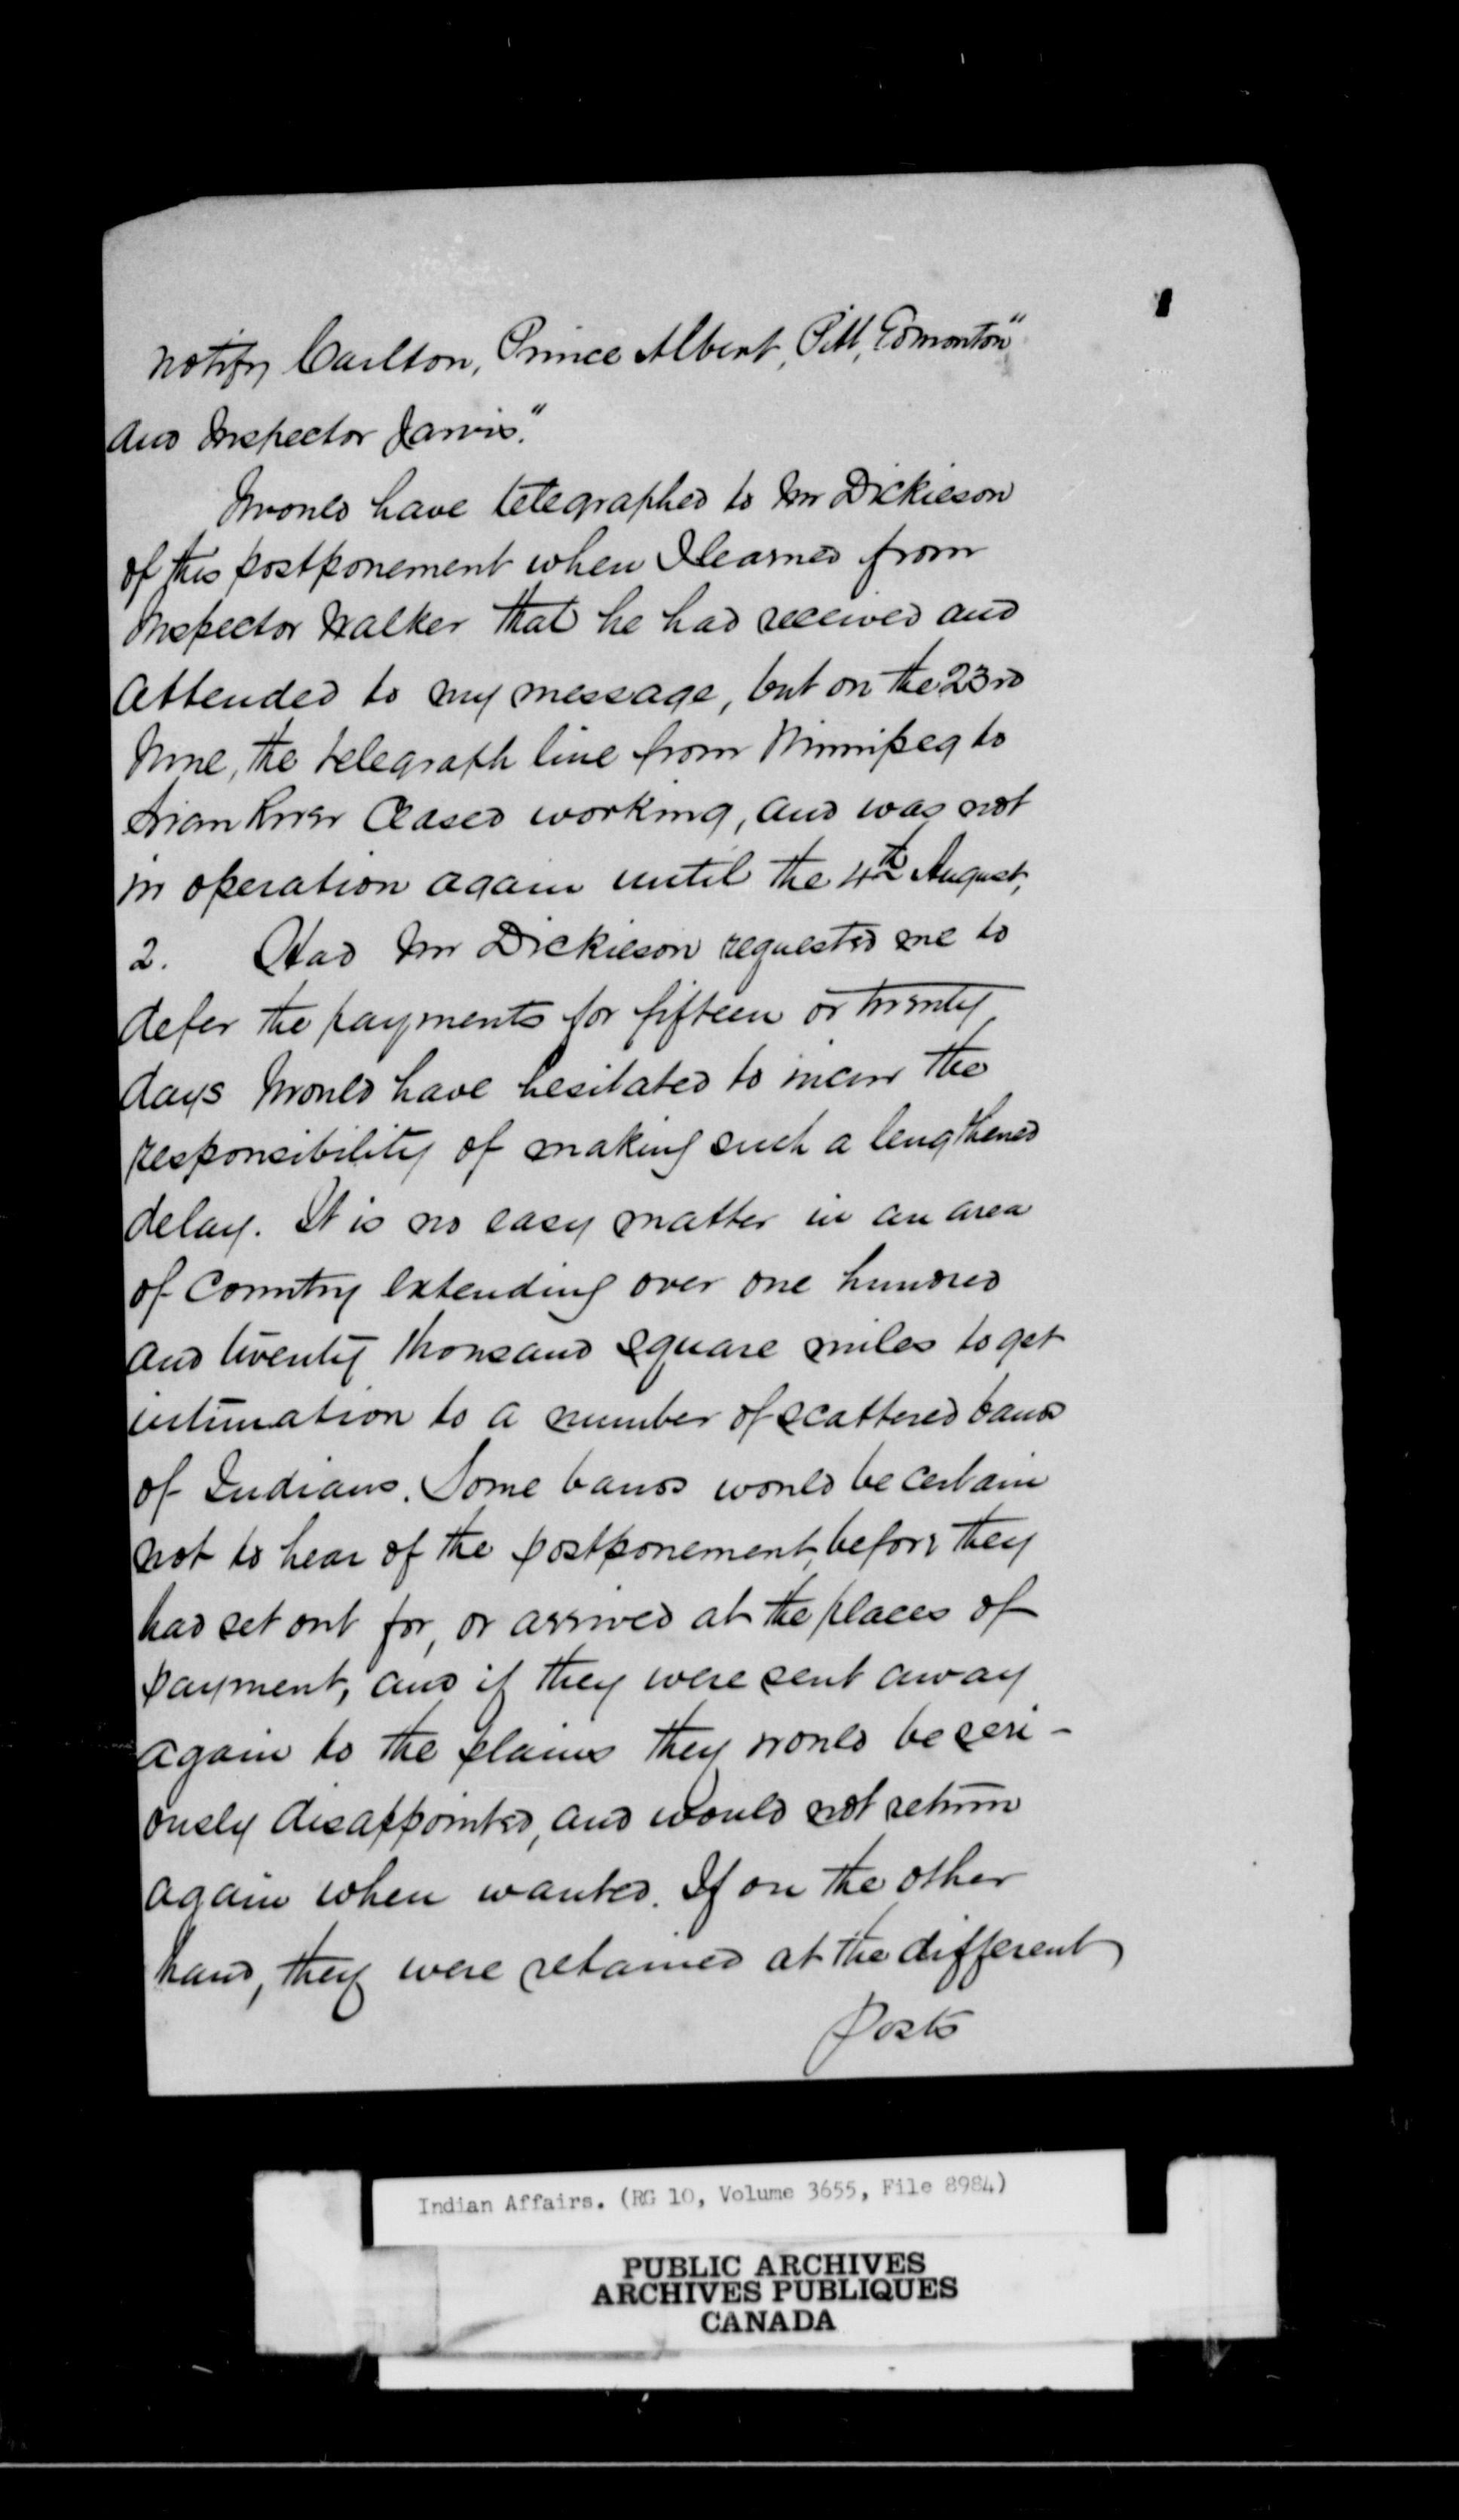 notify Carlton, Prince Albert, Pitt, Edmonton"
and Inspector Jarvis."
I would have telegraphed to Mr Dickieson
of this postponement when I learned from
Inspector Walker that he had received and
attended to my message, but on the 23rd
June, the telegraph line from Winnipeg to
Swan River ceased working, and was not
in operation again until the 4th August,
2. Had Mr Dickieson requested me to
defer the payments for fifteen or twenty
days I would have hesitated to incur the
responsibility of making such a lengthened
delay. It is no easy matter in an area
of Country extending over one hundred
and twenty thousand square miles to get
intimation to a number of scattered bands
of Indians. Some bands would be certain
not to hear of the postponement, before they
had set out for, or arrived at the places of
payment, and if they were sent away
again to the plains they would be seri-
ously disappointed, and would not return
again when wanted. If on the other
hand, they were retained at the different
posts
Indian Affairs. (RG 10, Volume 3655, File 8984)
PUBLIC ARCHIVES
ARCHIVES PUBLIQUES
CANADA